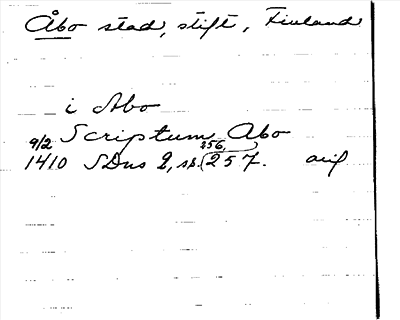 Åbo stad, stift, Finland
i Abo
Scriptum Abo
9/2
256,
1410 SDns 2, s. 257. avif